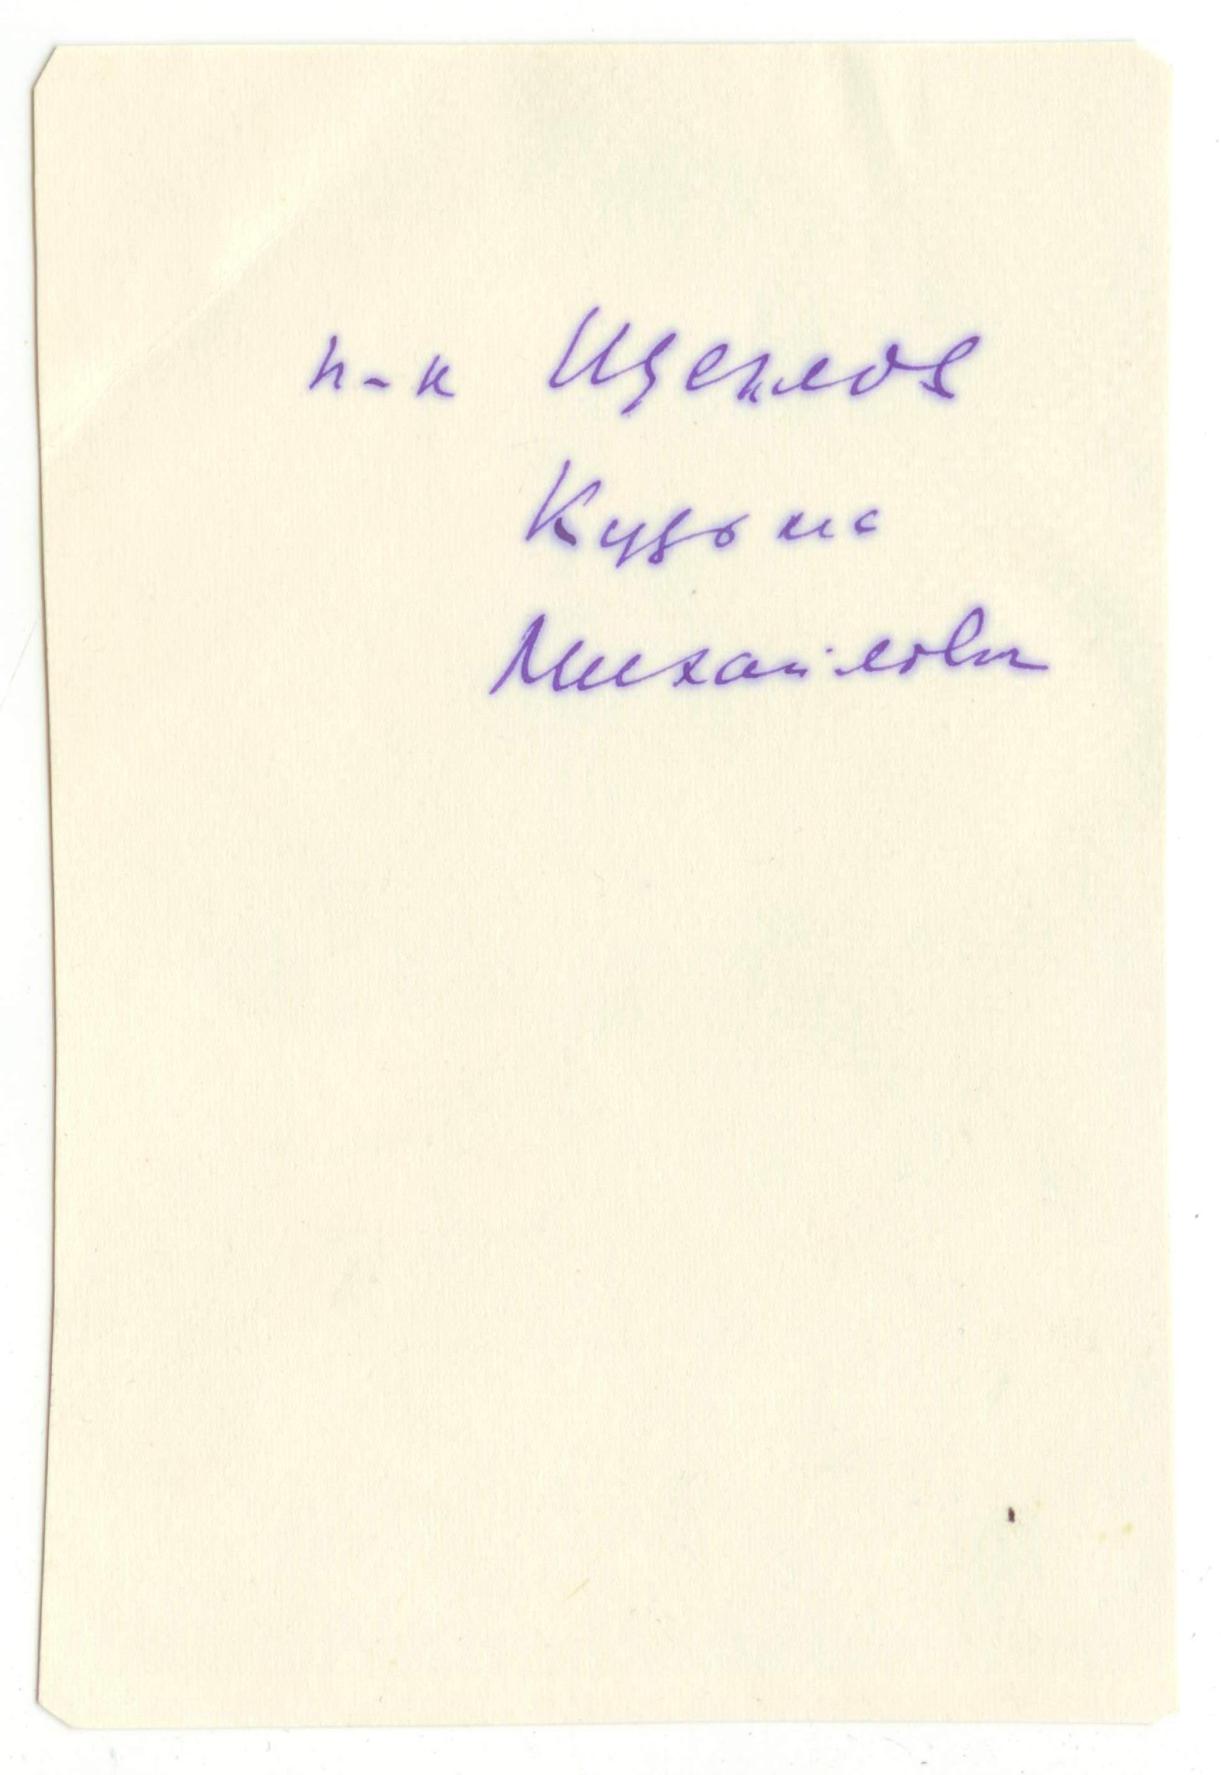 п-к Щеклов
Кузьма
Михайлович